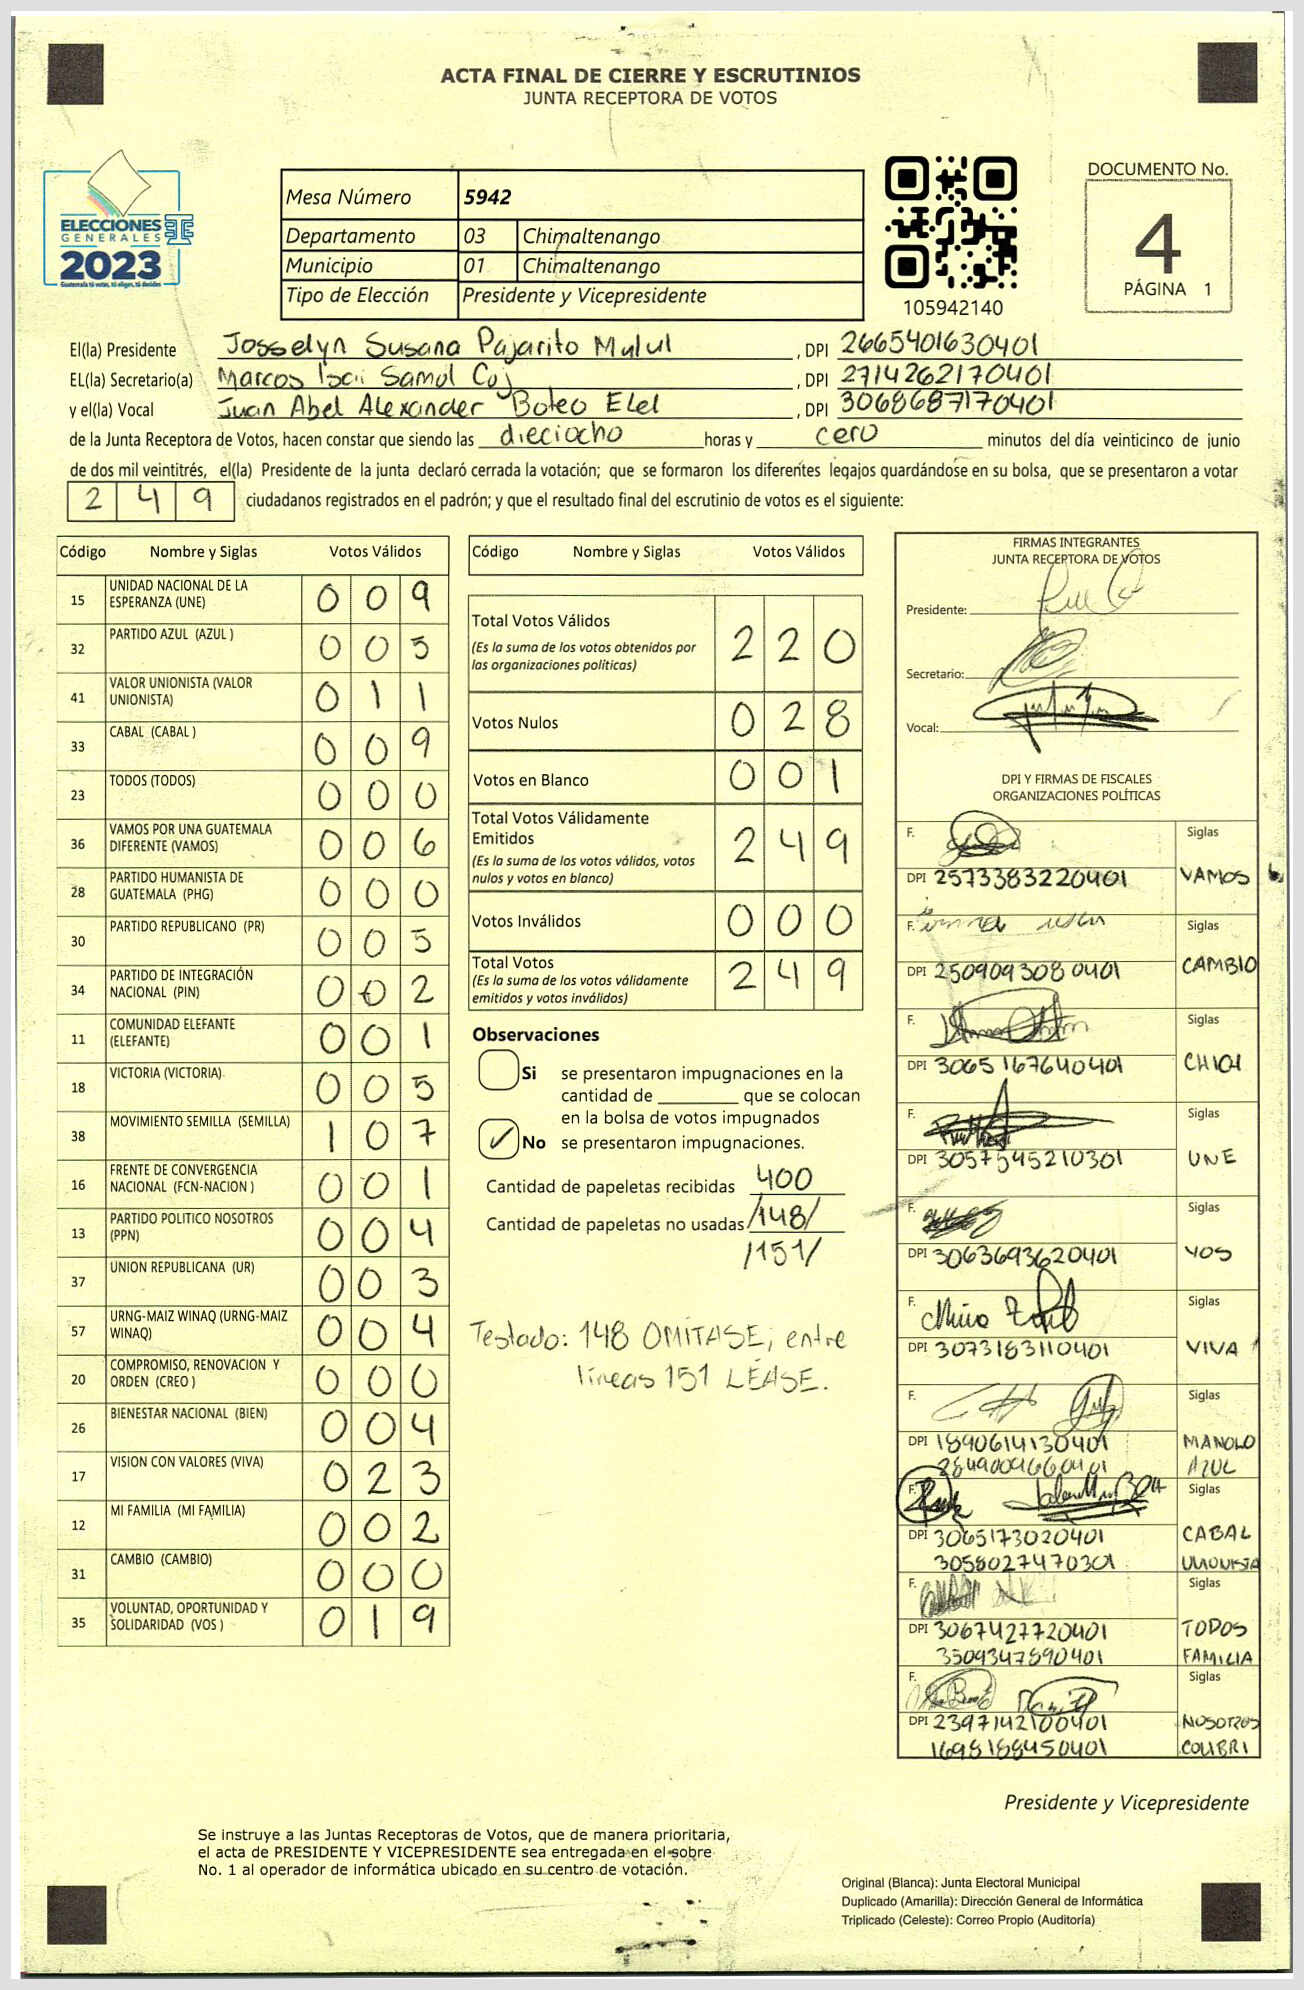 ACTA FINAL DE CIERRE Y ESCRUTINIOS
JUNTA RECEPTORA DE VOTOS
ELECCIONES
GENERALES
2023
Guatemala tú votas, tú eliges, tú decides
Mesa Número 5942
Departamento 03 Chimaltenango
Municipio 01 Chimaltenango
Tipo de Elección Presidente y Vicepresidente
105942140
DOCUMENTO No.
4
PÁGINA 1
El(la) Presidente Josselyn Susana Pajarito Mulul , DPI 2665401630401
EL(la) Secretario(a) Marcos Isai Samol Coj , DPI 2714262170401
y el(la) Vocal Juan Abel Alexander Boteo Elel , DPI 3068687170401
de la Junta Receptora de Votos, hacen constar que siendo las dieciocho horas y cero minutos del día veinticinco de junio
de dos mil veintitrés, el(la) Presidente de la junta declaró cerrada la votación; que se formaron los diferentes legajos guardándose en su bolsa, que se presentaron a votar
2 4 9 ciudadanos registrados en el padrón; y que el resultado final del escrutinio de votos es el siguiente:
Código Nombre y Siglas Votos Válidos
15 UNIDAD NACIONAL DE LA ESPERANZA (UNE) 0 0 9
32 PARTIDO AZUL (AZUL ) 0 0 5
41 VALOR UNIONISTA (VALOR UNIONISTA) 0 1 1
33 CABAL (CABAL ) 0 0 9
23 TODOS (TODOS) 0 0 0
36 VAMOS POR UNA GUATEMALA DIFERENTE (VAMOS) 0 0 6
28 PARTIDO HUMANISTA DE GUATEMALA (PHG) 0 0 0
30 PARTIDO REPUBLICANO (PR) 0 0 5
34 PARTIDO DE INTEGRACIÓN NACIONAL (PIN) 0 0 2
11 COMUNIDAD ELEFANTE (ELEFANTE) 0 0 1
18 VICTORIA (VICTORIA) 0 0 5
38 MOVIMIENTO SEMILLA (SEMILLA) 1 0 7
16 FRENTE DE CONVERGENCIA NACIONAL (FCN-NACION ) 0 0 1
13 PARTIDO POLITICO NOSOTROS (PPN) 0 0 4
37 UNION REPUBLICANA (UR) 0 0 3
57 URNG-MAIZ WINAQ (URNG-MAIZ WINAQ) 0 0 4
20 COMPROMISO, RENOVACION Y ORDEN (CREO ) 0 0 0
26 BIENESTAR NACIONAL (BIEN) 0 0 4
17 VISION CON VALORES (VIVA) 0 2 3
12 MI FAMILIA (MI FAMILIA) 0 0 2
31 CAMBIO (CAMBIO) 0 0 0
35 VOLUNTAD, OPORTUNIDAD Y SOLIDARIDAD (VOS ) 0 1 9
Código Nombre y Siglas Votos Válidos
Total Votos Válidos 2 2 0
(Es la suma de los votos obtenidos por
las organizaciones políticas)
Votos Nulos 0 2 8
Votos en Blanco 0 0 1
Total Votos Válidamente
Emitidos 2 4 9
(Es la suma de los votos válidos, votos
nulos y votos en blanco)
Votos Inválidos 0 0 0
Total Votos 2 4 9
(Es la suma de los votos válidamente
emitidos y votos inválidos)
Observaciones
Si se presentaron impugnaciones en la
cantidad de ________ que se colocan
en la bolsa de votos impugnados
✓ No se presentaron impugnaciones.
Cantidad de papeletas recibidas 400
Cantidad de papeletas no usadas /148/
/151/
Testado: 148 OMÍTASE; entre
líneas 151 LÉASE.
FIRMAS INTEGRANTES
JUNTA RECEPTORA DE VOTOS
Presidente:
Secretario:
Vocal:
DPI Y FIRMAS DE FISCALES
ORGANIZACIONES POLÍTICAS
F. Siglas
DPI 2573383220401 VAMOS
F. Siglas
DPI 2509093080401 CAMBIO
F. Siglas
DPI 3065167640401
F. Siglas
DPI 3057545210301 UNE
F. Siglas
DPI 3063693620401 VOS
F. Siglas
DPI 3073183110401 VIVA
F. Siglas
DPI 1890614130401 MANOLO
2849009660401 AZUL
F. Siglas
DPI 3065173020401 CABAL
3058027470301 UNIONISTA
F. Siglas
DPI 3067427720401 TODOS
3509347890401 FAMILIA
F. Siglas
DPI 2397142100401 NOSOTROS
1698188450401 COLIBRI
Presidente y Vicepresidente
Se instruye a las Juntas Receptoras de Votos, que de manera prioritaria,
el acta de PRESIDENTE Y VICEPRESIDENTE sea entregada en el sobre
No. 1 al operador de informática ubicado en su centro de votación.
Original (Blanca): Junta Electoral Municipal
Duplicado (Amarilla): Dirección General de Informática
Triplicado (Celeste): Correo Propio (Auditoría)